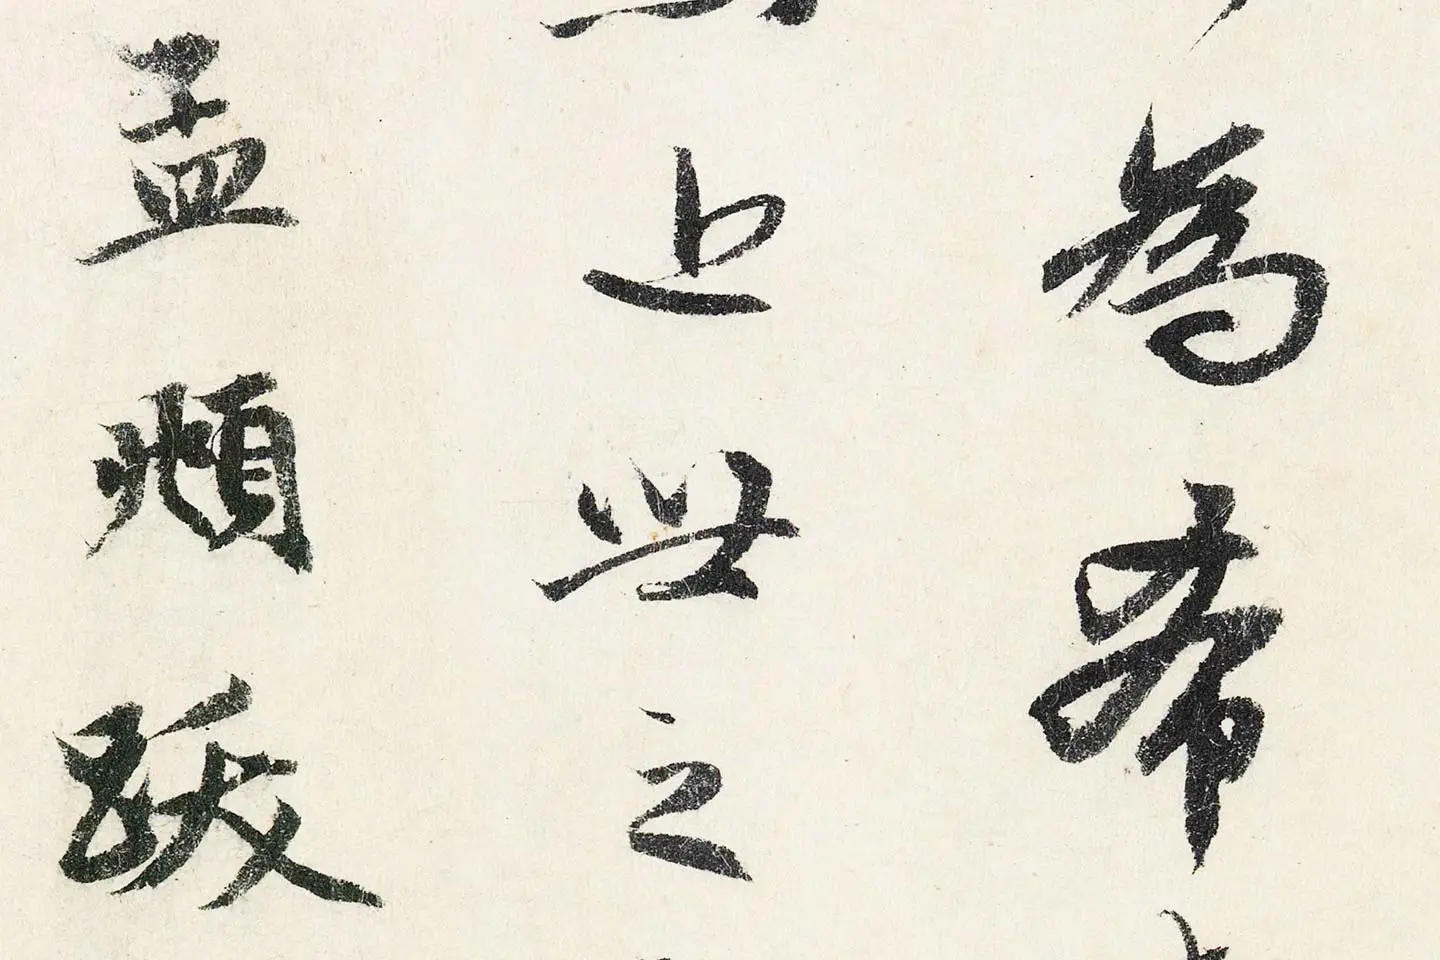 為希
上世之
孟頫跋